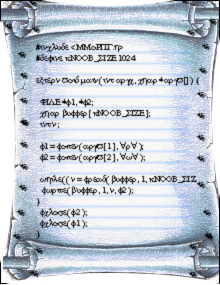 #ινχλυδε
#δεφινε κΝΟΟΒ_ΣΙΖΕ 1024
εξτερν ϖοιδ μαιν(ιντ αργχ, χηαρ ∗αργϖ[]) {
ΦΙΛΕ ∗φ1, ∗φ2;
χηαρ βυφφερ[κΝΟΟΒ_ΣΙΖΕ];
ιντ ν;
φ1 = φοπεν(αργϖ[1], ∀ρ∀);
φ2 = φοπεν(αργϖ[2], ∀ω∀);
ωηιλε((ν = φρεαδ( βυφφερ, 1, κΝΟΟΒ_ΣΙΖ
φωριτε(βυφφερ, 1, ν, φ2);
}
φχλοσε(φ2);
φχλοσε(φ1);
}